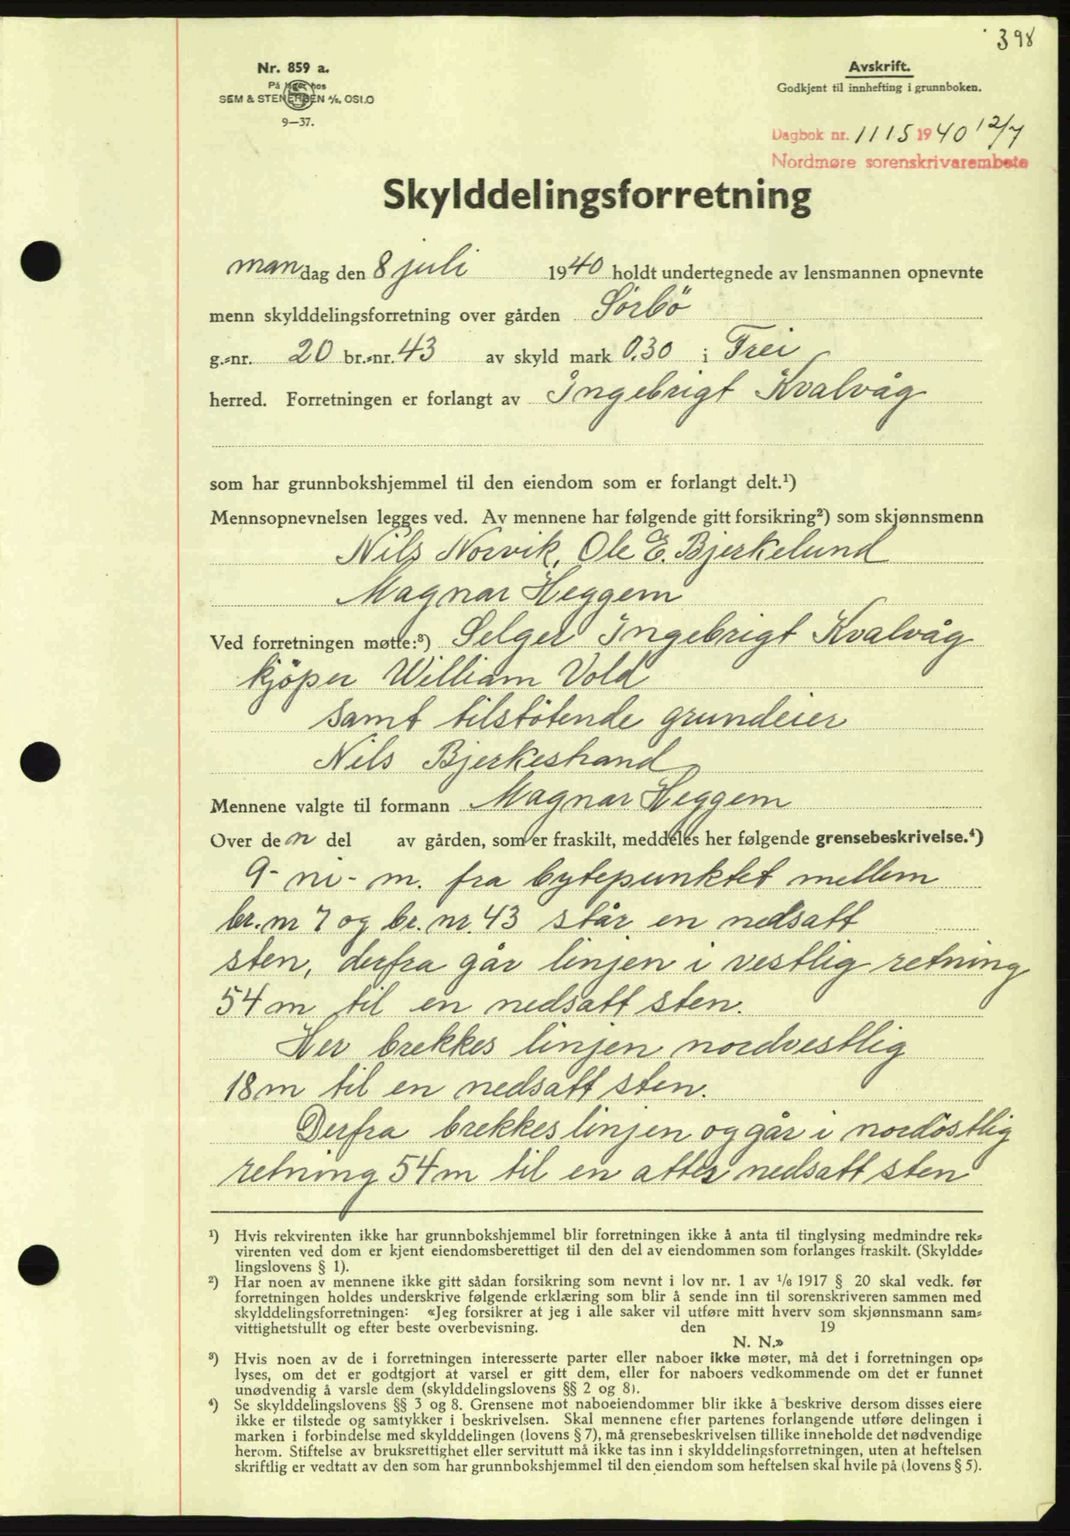 398
Nr. 859 a.
På lager hos
SEM & STENERSEN A/S, OSLO
9—37.
Avskrift.
Godkjent til innhefting i grunnboken.
Dagbok nr. 1115 1940 12/7
Nordmøre sorenskrivarembete
Skylddelingsforretning
mandag den 8 juli 1940 holdt undertegnede av lensmannen opnevnte
menn skylddelingsforretning over gården Sörbö
g.-nr. 20 br.-nr. 43 av skyld mark 0.30 i Frei
herred. Forretningen er forlangt av Ingebrigt Kvalvåg
som har grunnbokshjemmel til den eiendom som er forlangt delt.¹)
Mennsopnevnelsen legges ved. Av mennene har følgende gitt forsikring²) som skjønnsmenn
Nils Norvik, Ole E. Bjerkelund
Magnar Heggem
Ved forretningen møtte:³) Selger Ingebrigt Kvalvåg
kjöper William Vold
samt tilstötende grundeier
Nils Bjerkestrand
Mennene valgte til formann Magnar Heggem
Over den del av gården, som er fraskilt, meddeles her følgende grensebeskrivelse.⁴)
9- ni- m. fra bytepunktet mellem
br. nr 7 og br. nr. 43 står en nedsatt
sten, derfra går linjen i vestlig retning
54 m til en nedsatt sten.
Her brekkes linjen nordvestlig
18 m til en nedsatt sten.
Derfra brekkes linjen og går i nordöstlig
retning 54 m til en atter nedsatt sten
¹) Hvis rekvirenten ikke har grunnbokshjemmel blir forretningen ikke å anta til tinglysing medmindre rek-
virenten ved dom er kjent eiendomsberettiget til den del av eiendommen som forlanges fraskilt. (Skyldde-
lingslovens § 1).
²) Har noen av mennene ikke gitt sådan forsikring som nevnt i lov nr. 1 av 1/6 1917 § 20 skal vedk. før
forretningen holdes underskrive følgende erklæring som blir å sende inn til sorenskriveren sammen med
skylddelingsforretningen: «Jeg forsikrer at jeg i alle saker vil utføre mitt hverv som skjønnsmann sam-
vittighetsfullt og efter beste overbevisning. den 19
N. N.»
³) Hvis noen av de i forretningen interesserte parter eller naboer ikke møter, må det i forretningen op-
lyses, om det er godtgjort at varsel er gitt dem, eller for naboers vedkommende om det er funnet
unødvendig å varsle dem (skylddelingslovens §§ 2 og 8).
⁴) Se skylddelingslovens §§ 3 og 8. Grensene mot naboeiendommer blir ikke å beskrive dersom disses eiere
ikke er tilstede og samtykker i beskrivelsen. Skal mennene efter partenes forlangende utføre delingen i
marken i forbindelse med skylddelingen (lovens § 7), må grensebeskrivelsen tillike inneholde det nødvendige
herom. Stiftelse av bruksrettighet eller servitutt må ikke tas inn i skylddelingsforretningen, uten at heftelsen
skriftlig er vedtatt av den som har grunnbokshjemmel til den eiendom som heftelsen skal hvile på (lovens § 5).